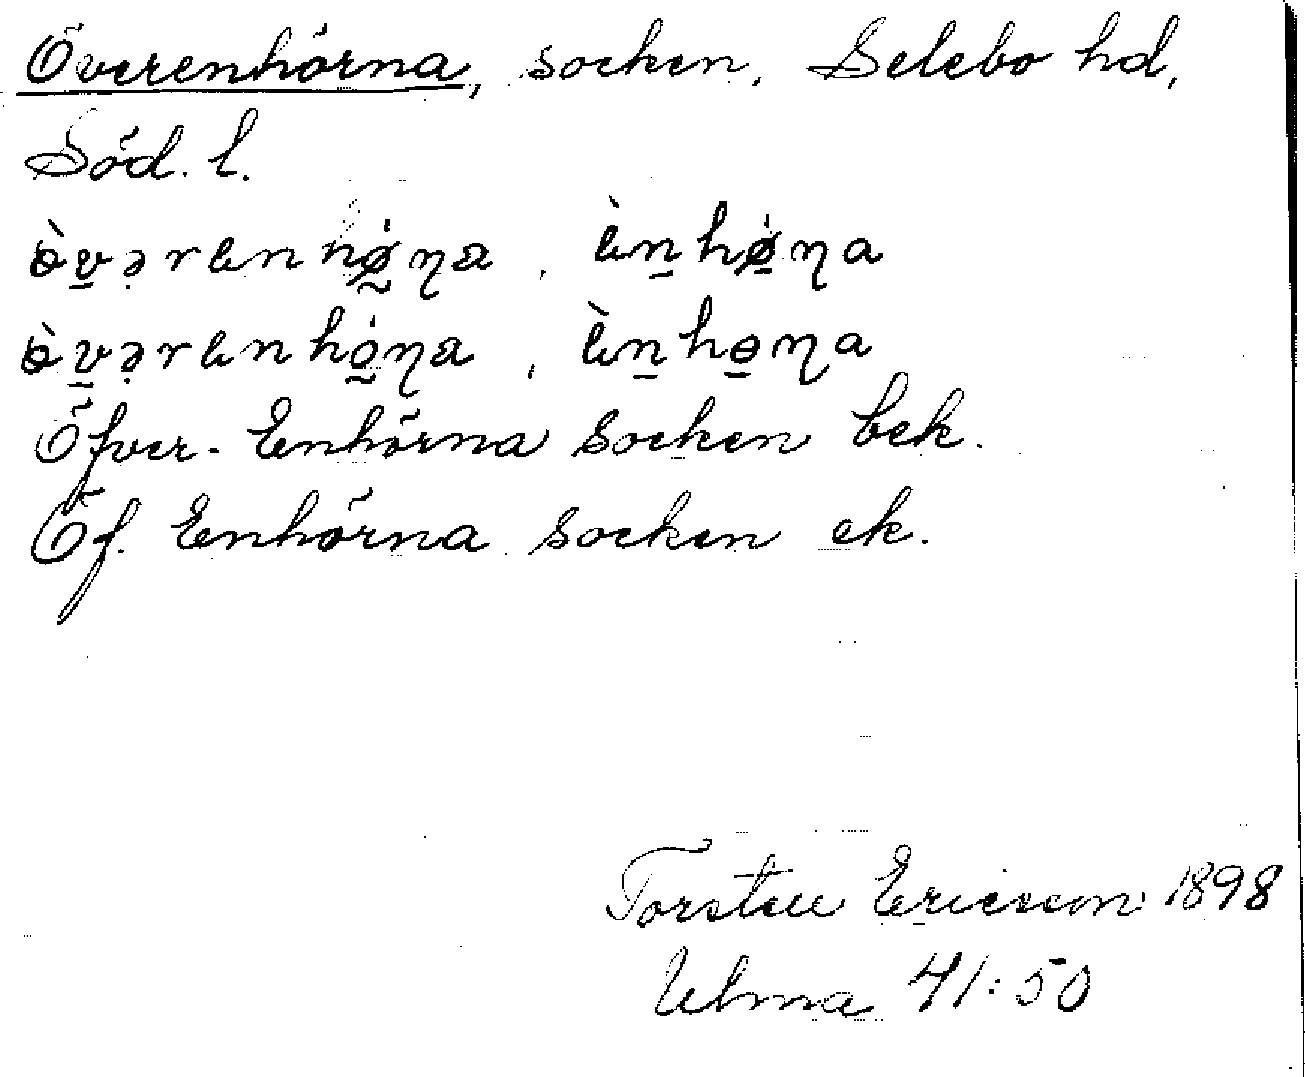 Överenhörna, socken, Selebo hd,
Söd. l.
ö̀v̱ərenhǿ̰ɳa, èṉhǿ̱ɳa
ö̀v̱ərenhö̰́ɳa, èṉhö̱ɳa
Öfver-Enhörna socken bek.
Öf. Enhörna socken ek.
Torsten Ericsson 1898
Ulma 41:50